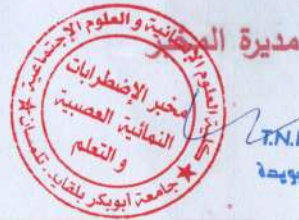 مديرة المخبر
كلية العلوم الإنسانية و العلوم الإجتماعية
مخبر الإضطرابات
النمائية العصبية
و التعلم
جامعة أبوبكر بلقايد. تلمسان